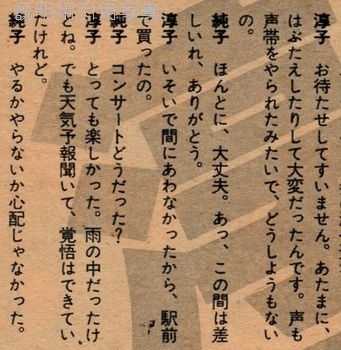 淳子　お待たせしてすいません。あたまに、
はぶたえしたりして大変だったんです。声も
声帯をやられたみたいで、どうしようもない
の。
純子　ほんとに、大丈夫。あっ、この間は差
しいれ、ありがとう。
淳子　いそいで間にあわなかったから、駅前
で買ったの。
純子　コンサートどうだった？
淳子　とっても楽しかった。雨の中だったけ
どね。でも天気予報聞いて、覚悟はできてい
たけれど。
純子　やるかやらないか心配じゃなかった。